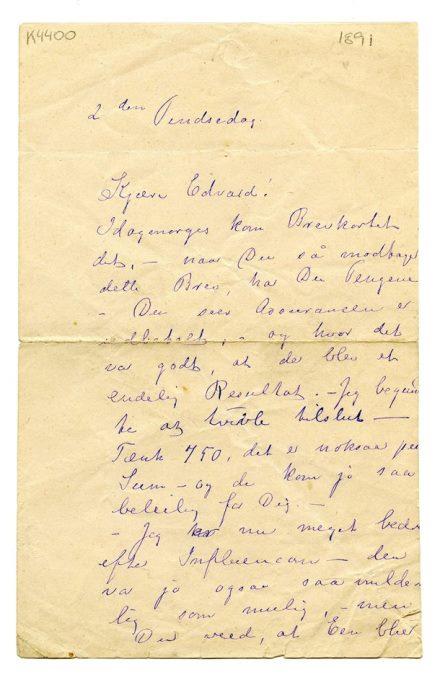 K4400
1891
2den Pindsedag.
Kjære Edvard!
Idagmorges kom Brevkortet
dit, – naar Du så modtager
dette Brev, har Du Pengene
– Du seer Assuransen er
udbetalt, – og hvor det
var godt, at der blev et
endelig Resultat. – Jeg begynd
te at tvivle tilslut –
Tænk 750, det er noksaa pen
Sum – og de kom jo saa
beleilig for Dig. –
– Jeg er nu meget bedre
efter Influencan – den
va jo ogsaa saa milde
lig som mulig, – men
Du veed, at Een blir